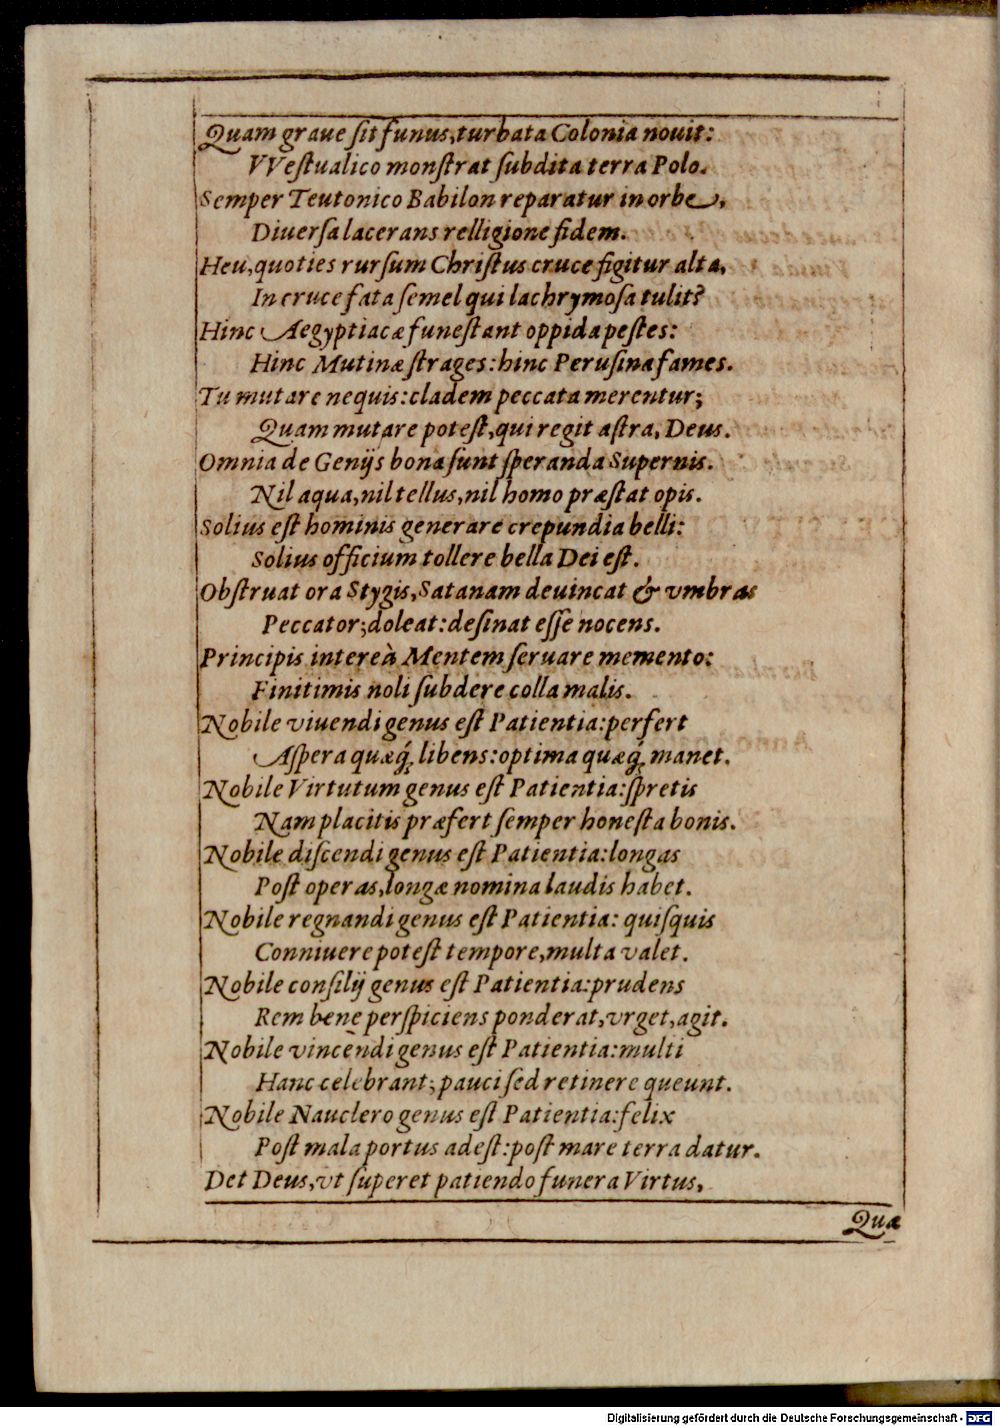 Quam graue ſit funus, turbata Colonia nouit:
VVeſtualico monſtrat ſubdita terra Polo.
Semper Teutonico Babilon reparatur in orbe,
Diuerſa lacerans relligione fidem.
Heu, quoties rurſum Chriſtus cruce figitur alta,
In cruce fata ſemel qui lachrymoſa tulit?
Hinc Aegyptiacæ funeſtant oppida peſtes:
Hinc Mutinæ ſtrages: hinc Peruſina fames.
Tu mutare nequis: cladem peccata merentur;
Quam mutare poteſt, qui regit aſtra, Deus.
Omnia de Genijs bona ſunt ſperanda Supernis.
Nil aqua, nil tellus, nil homo præſtat opis.
Solius eſt hominis generare crepundia belli:
Solius officium tollere bella Dei eſt.
Obſtruat ora Stygis, Satanam deuincat & vmbras
Peccator; doleat: deſinat eſſe nocens.
Principis intereà Mentem ſeruare memento:
Finitimis noli ſubdere colla malis.
Nobile viuendi genus eſt Patientia: perfert
Aſpera quæq́; libens: optima quæq́; manet.
Nobile Virtutum genus eſt Patientia: ſpretis
Nam placitis præfert ſemper honeſta bonis.
Nobile diſcendi genus eſt Patientia: longas
Poſt operas, longæ nomina laudis habet.
Nobile regnandi genus eſt Patientia: quiſquis
Conniuere poteſt tempore, multa valet.
Nobile conſilij genus eſt Patientia: prudens
Rem bene perſpiciens ponderat, vrget, agit.
Nobile vincendi genus eſt Patientia: multi
Hanc celebrant; pauci ſed retinere queunt.
Nobile Nauclero genus eſt Patientia: felix
Poſt mala portus adeſt: poſt mare terra datur.
Det Deus, vt ſuperet patiendo funera Virtus,
Quæ
Digitalisierung gefördert durch die Deutsche Forschungsgemeinschaft - DFG